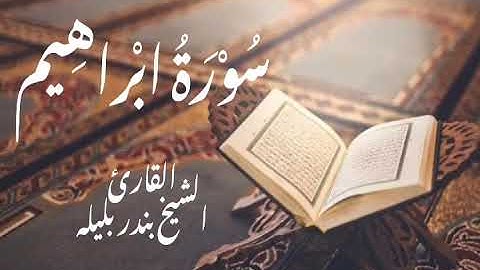 سُوْرَةُ ابْرَاهِيم
القارئ
الشيخ بندر بليله